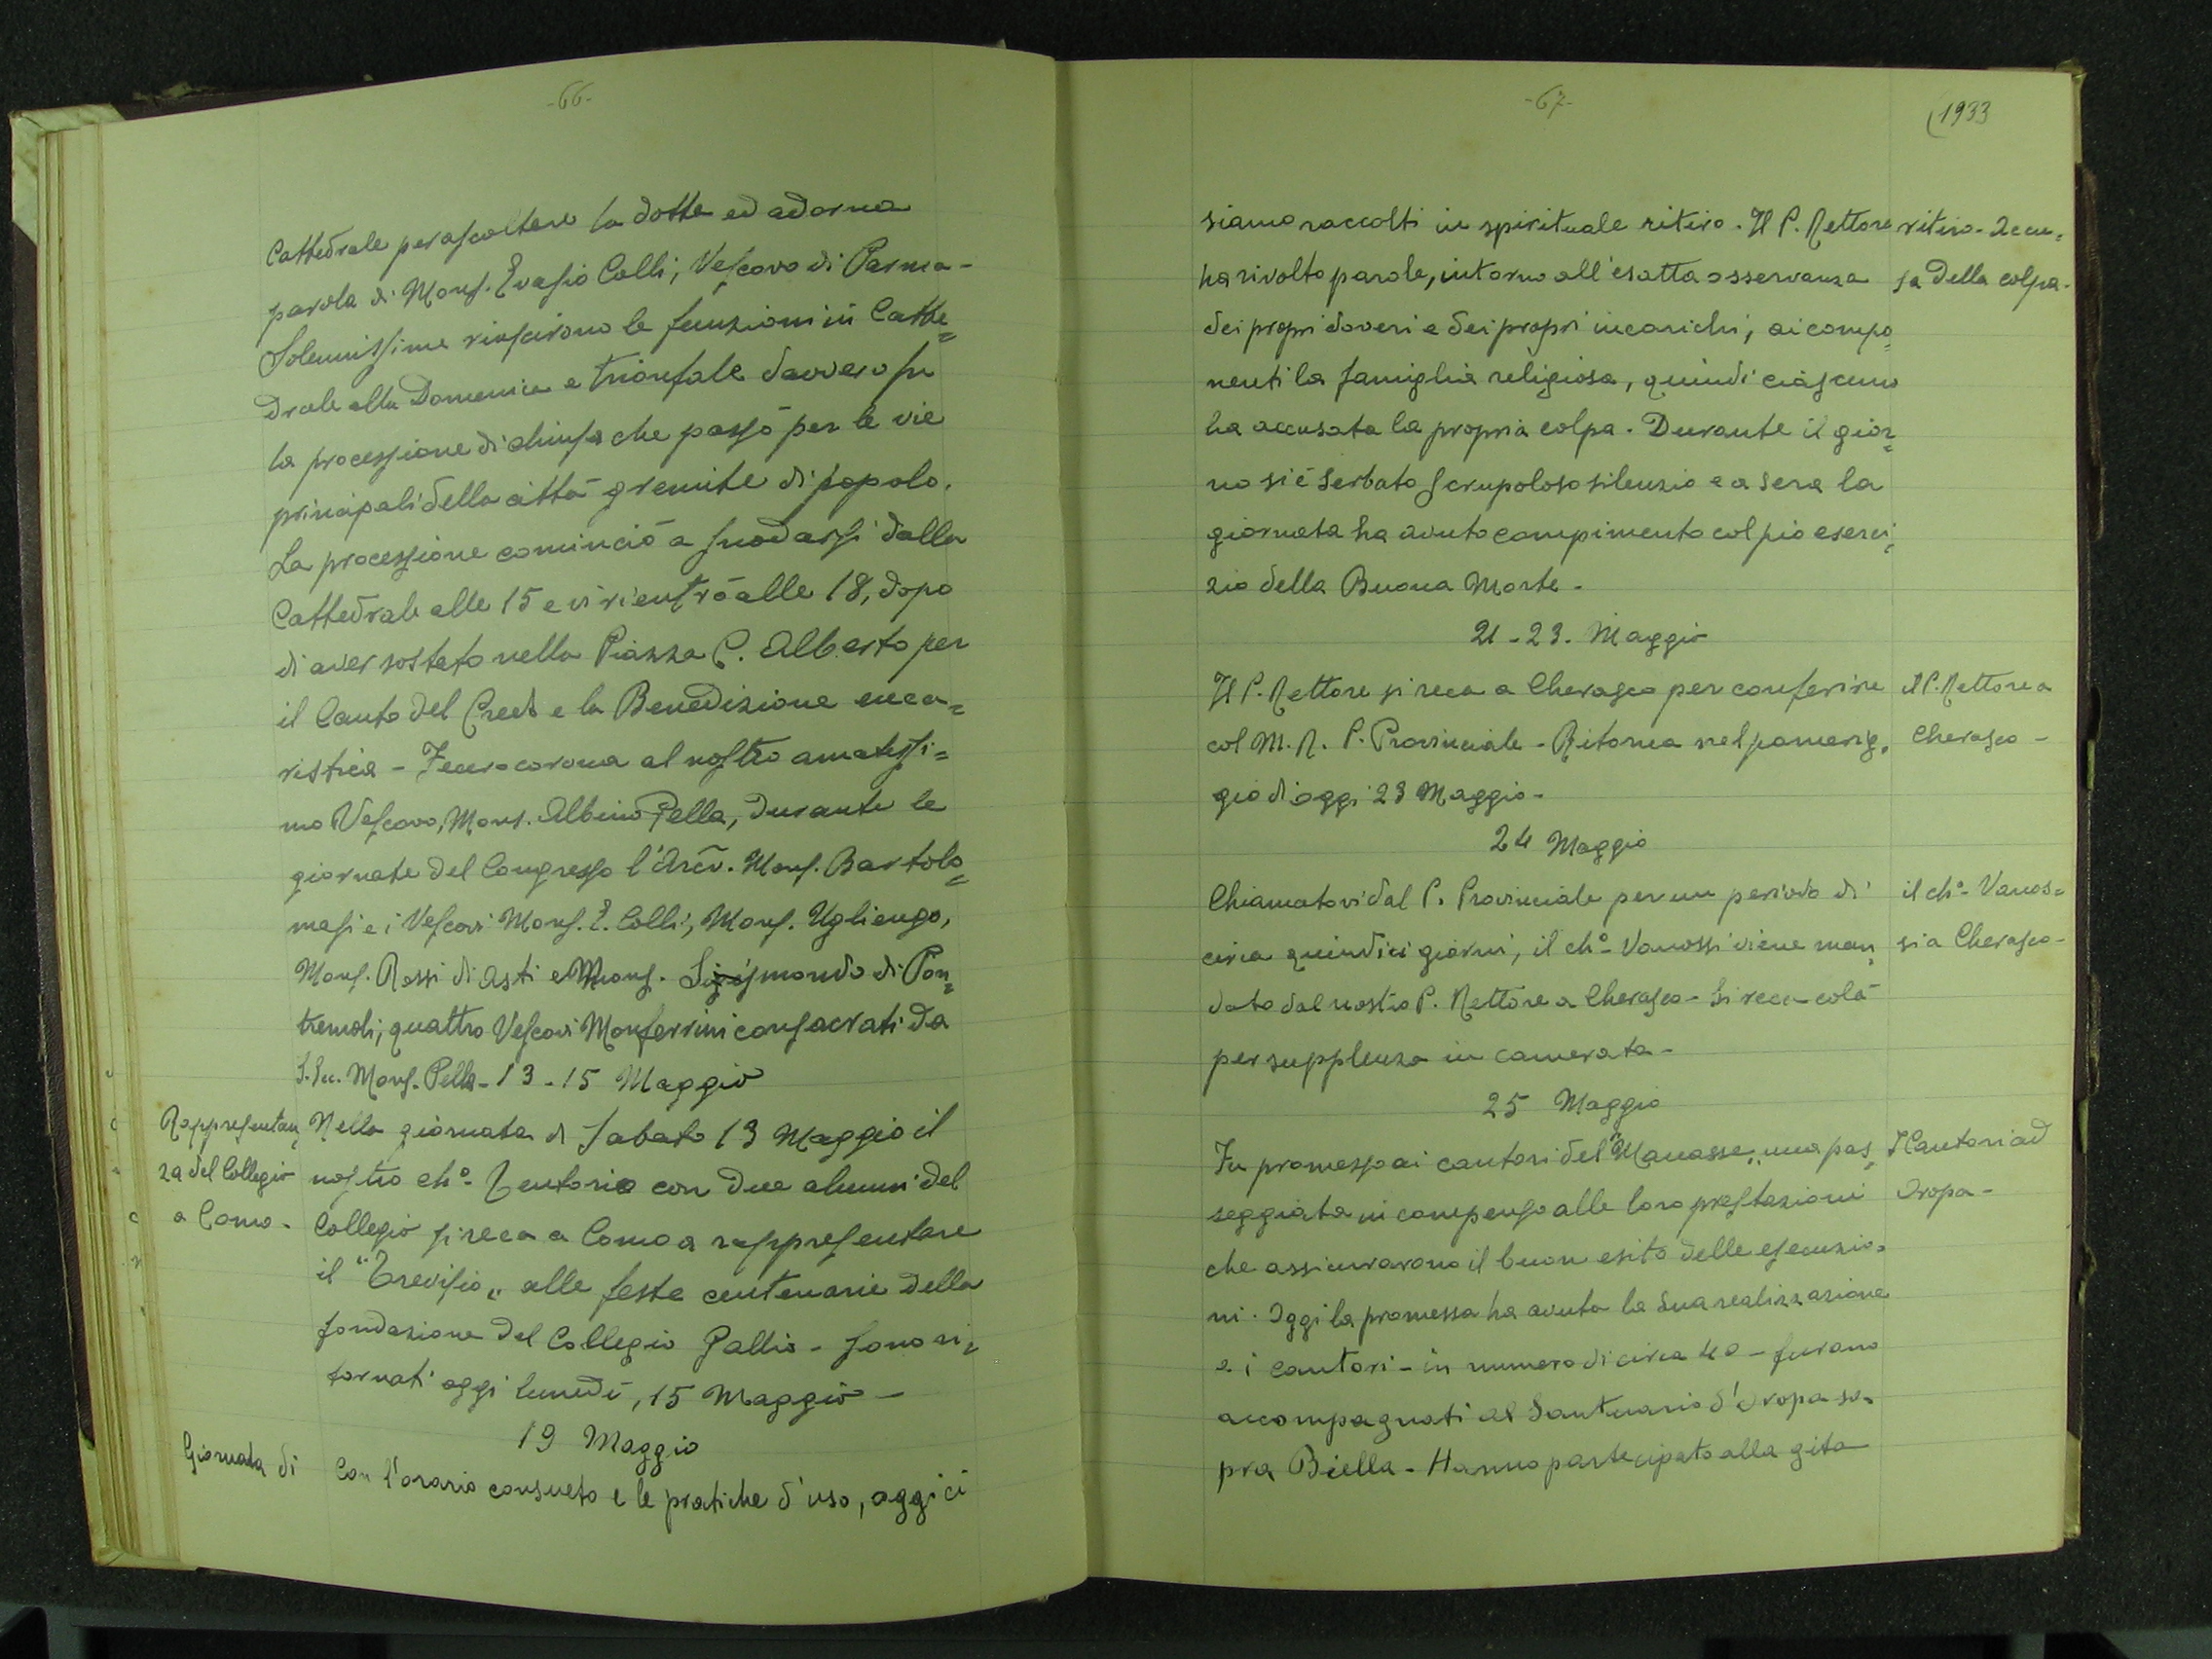 -66-
Cattedrale per ascoltare la dotta ed adorna
parola di Mons. Evasio Colli, Vescovo di Parma -
Solennissime riuscirono le funzioni in Catte=
drale alla Domenica e trionfale davvero fu
la processione di chiusa che passò per le vie
principali della città gremite di popolo.
La processione cominciò a snodarsi dalla
Cattedrale alle 15 e vi rientrò alle 18, dopo
di aver sostato nella Piazza C. Alberto per
il Canto del Credo e la Benedizione euca=
ristica - Fecero corona al nostro amatissi=
mo Vescovo, Mons. Albino Pella, durante le
giornate del Congresso l'Arcv. Mons. Bartolo=
masi e i Vescovi Mons. E. Colli, Mons. Ugliengo,
Mons. Rossi di Asti e Mons. Sismondo di Pon=
tremoli, quattro Vescovi Monferrini consacrati da
S. Ecc. Mons. Pella - 13 - 15 Maggio
Rappresentan=
za del Collegio
a Como -
Nella giornata di Sabato 13 Maggio il
nostro ch.º Zentorio con due alunni del
Collegio si reca a Como a rappresentare
il "Trevisio" alle feste centenarie della
fondazione del Collegio Gallio - sono ri=
tornati oggi lunedì, 15 Maggio -
19 Maggio
Giornata di
Con l'orario consueto e le pratiche d'uso, oggi ci
-67-
(1933
siamo raccolti in spirituale ritiro. Il P. Rettore
ha rivolto parole, intorno all'esatta osservanza
dei propri doveri e dei propri incarichi, ai compo=
nenti la famiglia religiosa, quindi ciascuno
ha accusata la propria colpa. Durante il gior=
no si è serbato scrupoloso silenzio e a sera la
giornata ha avuto compimento col pio eserci=
zio della Buona Morte -
ritiro - Accu=
sa della colpa -
21 - 23. Maggio
Il P. Rettore si reca a Cherasco per conferire
col M. R. P. Provinciale - Ritorna nel pomerig=
gio di oggi 23 Maggio -
Il P. Rettore a
Cherasco -
24 Maggio
Chiamatovi dal P. Provinciale per un periodo di
circa quindici giorni, il ch.º Vanossi viene man=
dato dal nostro P. Rettore a Cherasco - Si reca colà
per supplenza in camerata -
il ch.º Vanos=
si a Cherasco -
25 Maggio
Fu promesso ai cantori del "Manasse" una pas=
seggiata in compenso alle loro prestazioni
che assicurarono il buon esito delle esecuzio=
ni. Oggi la promessa ha avuto la sua realizzazione
e i cantori - in numero di circa 40 - furono
accompagnati al Santuario d'Oropa so=
pra Biella - Hanno partecipato alla gita
I Cantori ad
Oropa -